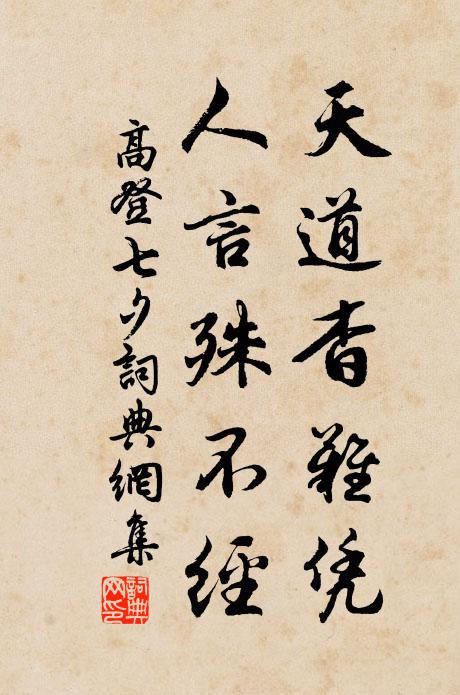 天道杳難凭
人言殊不經
高登七夕詞典網集
詞典网印